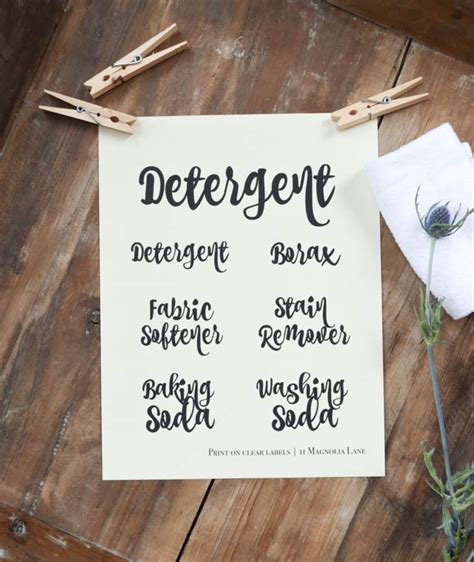 Detergent
Detergent Borax
Fabric Stain
Softener Remover
Baking Washing
Soda Soda
Print on clear labels | 11 Magnolia Lane